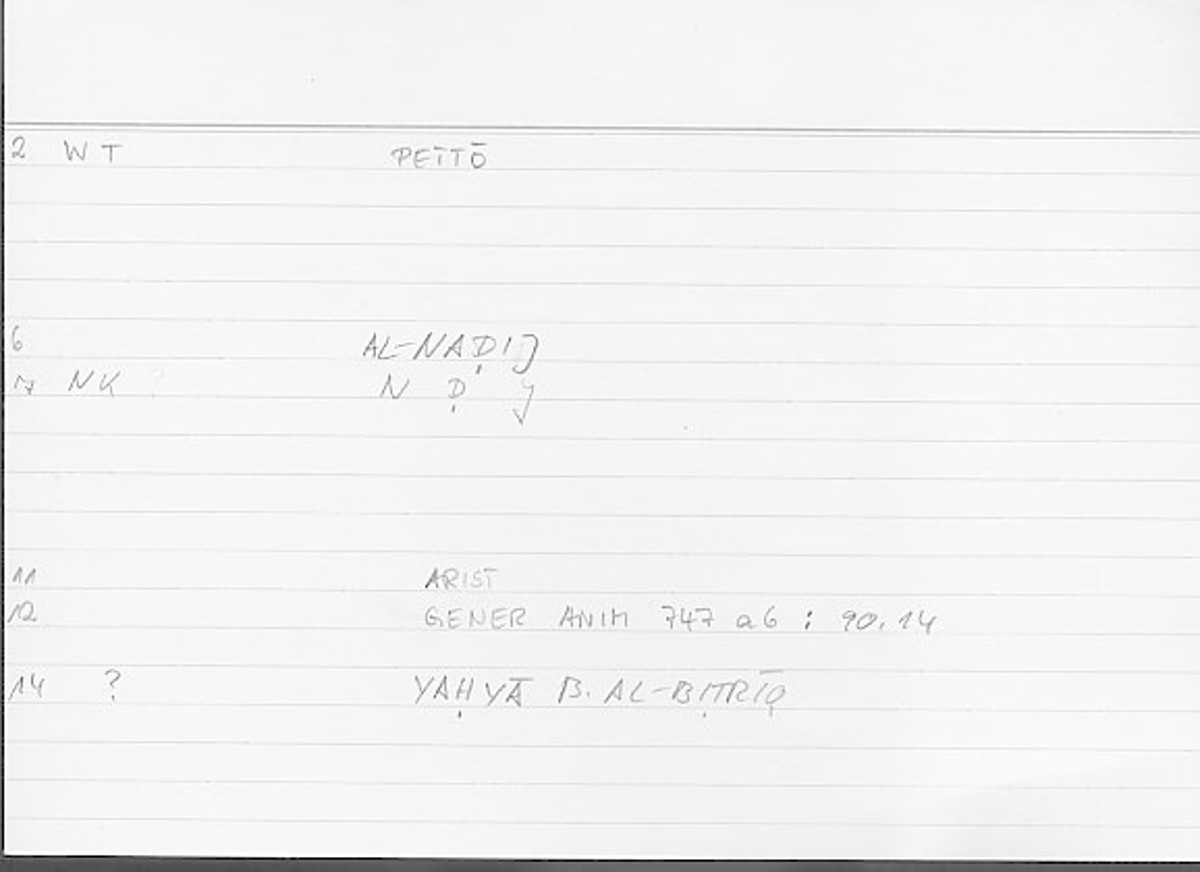 2 WT PETTŌ
6 AL-NAḌIJ
7 NK ? N Ḍ J
11 ARIST
12 GENER ANIM 747 a6 : 90.14
14 ? YAḤYĀ B. AL-BIṬRĪQ